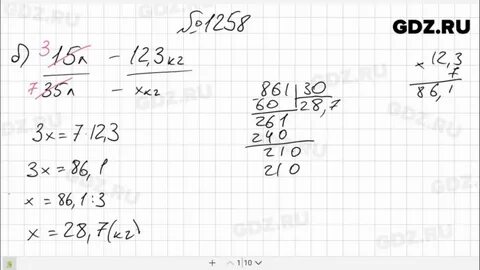 №1258
GDZ.RU
б) 3 15л – 12,3 кг
7 35л – x кг
3x = 7·12,3
3x = 86,1
x = 86,1:3
x = 28,7(кг)
861 30
60 28,7
261
240
210
210
× 12,3
7
86,1
+ 1 | 10